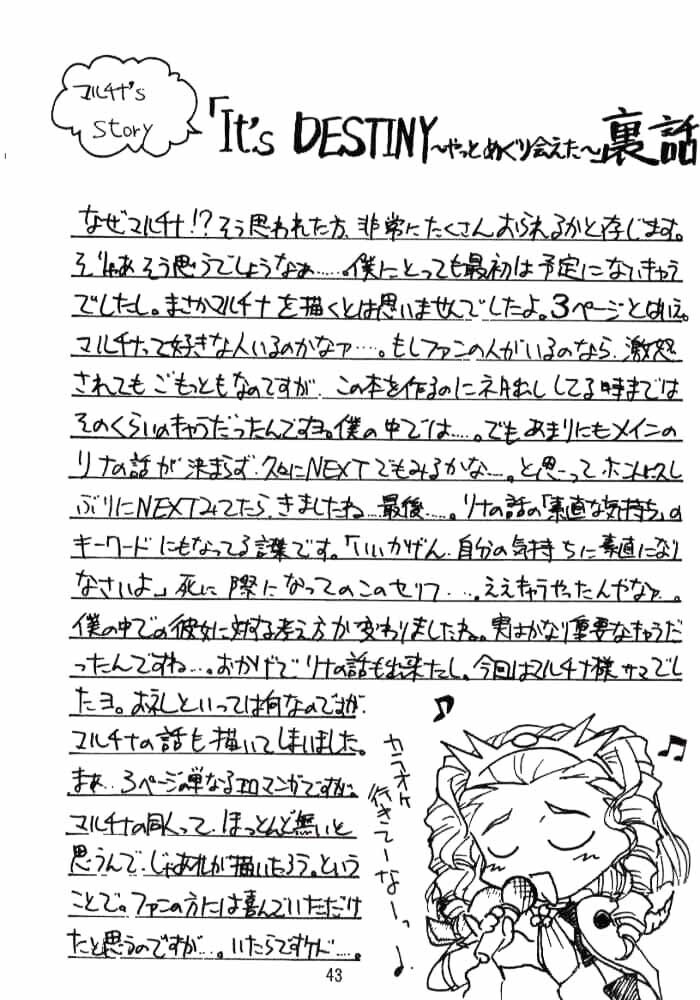 マルチナ's
Story
「It's DESTINY〜やっとめぐり会えた〜」裏話
なぜマルチナ!?そう思われた方、非常にたくさんおられるかと存じます。
そりゃあそう思うでしょうなぁ……。僕にとっても最初は予定にないキャラ
でしたし。まさかマルチナを描くとは思いませんでしたよ。3ページとはいえ。
マルチナって好きな人いるのかなァ…。もしファンの人がいるのなら、激怒
されてもごもっともなのですが、この本を作るのにネタ出ししてる時までは
そのくらいのキャラだったんですヨ。僕の中では……。でもあまりにもメインの
リナの話が決まらず、久々にNEXTでもみるかな……。と思ってホントに久し
ぶりにNEXTみてたら、きましたね…最後……。リナの話の「素直な気持ち」の
キーワードにもなってる言葉です。「いいかげん、自分の気持ちに素直になり
なさいよ」死に際になってのこのセリフ……。ええキャラやったんやなァ…。
僕の中での彼女に対する考え方が変わりましたね。実はかなり重要なキャラだ
ったんですね…。おかげでリナの話も出来たし。今回はマルチナ様サマでし
たヨ。お礼といっては何なのですが、
マルチナの話も描いてしまいました。
まぁ…3ページの単なるエロマンガですが。
マルチナの同人って、ほっとんど無いと
思うんで、じゃあオレが描いたろう。という
ことで。ファンの方には喜んでいただけ
たと思うのですが…。いたらですケド…。
カラオケ
行きてーなーっ
43